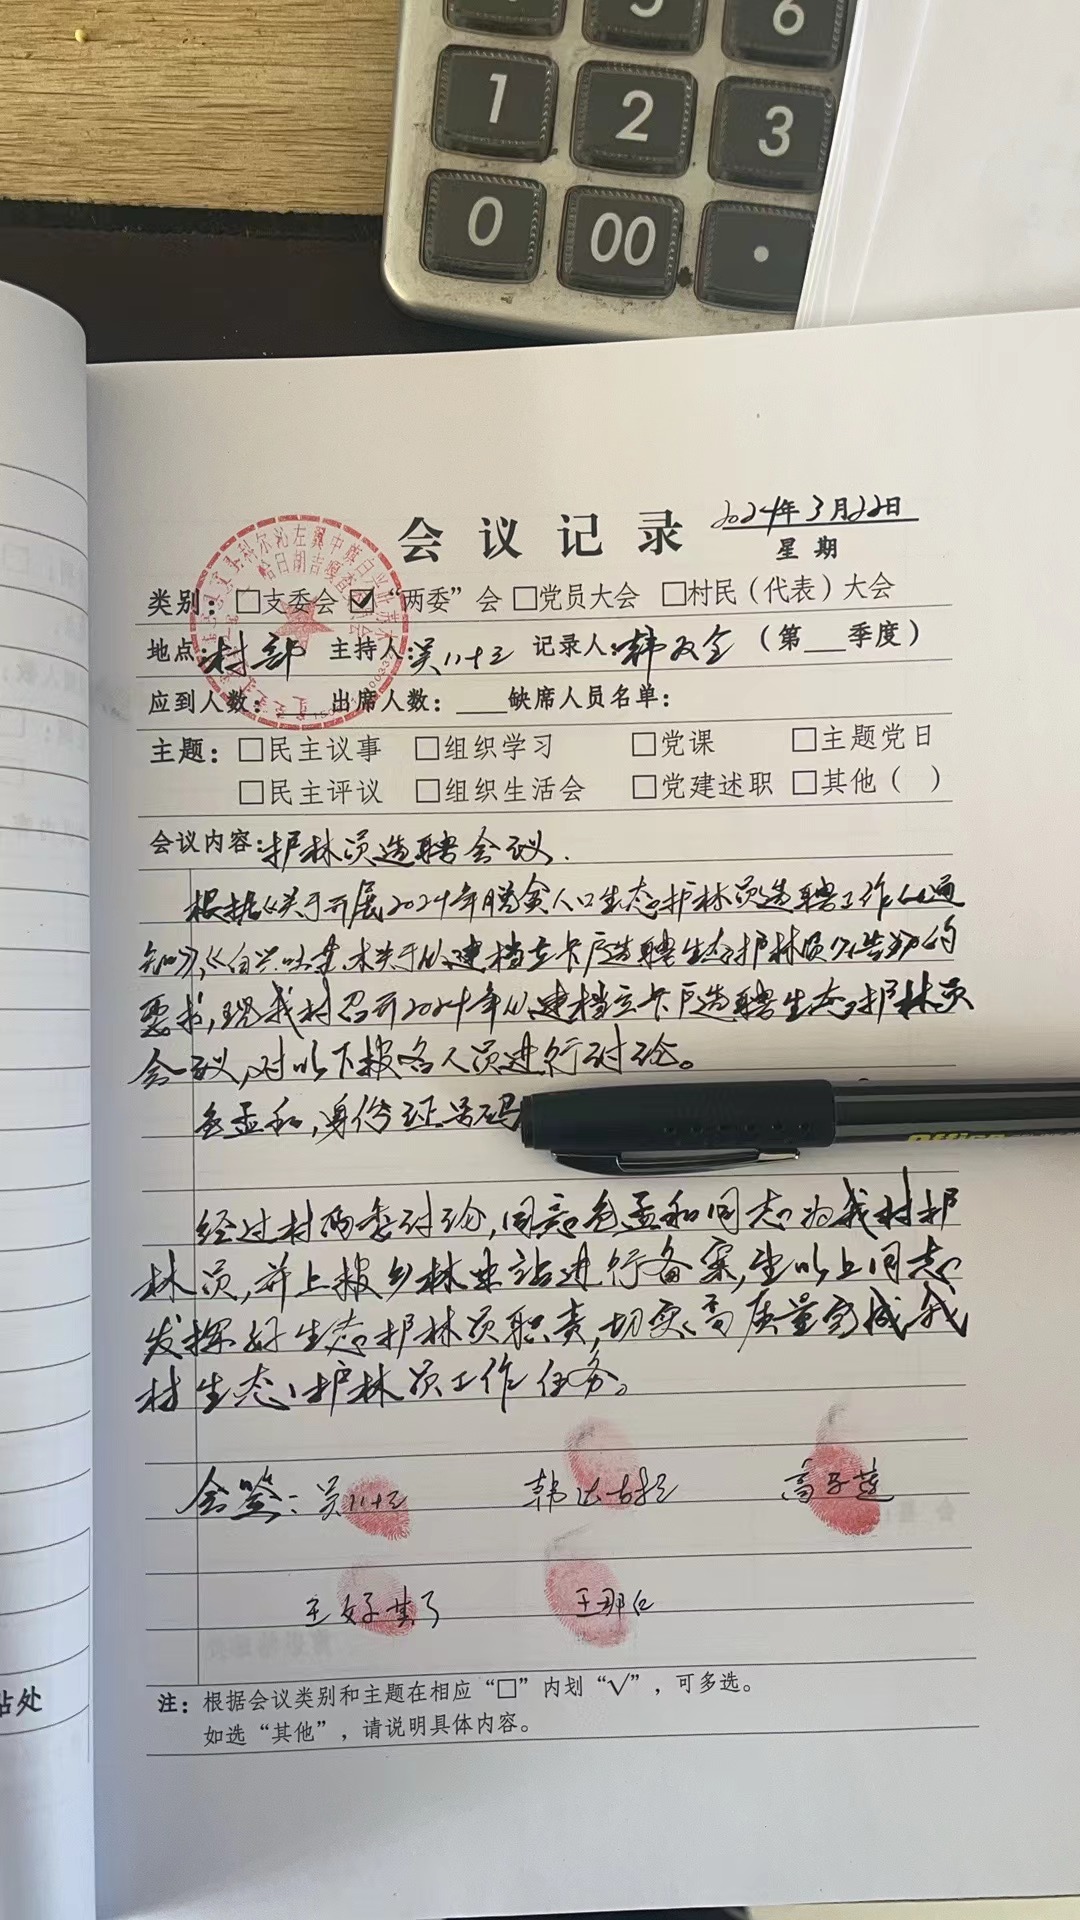 5
6
1
2
3
0
00
.
会议记录
2024年3月22日
星期
类别：□支委会 ☑“两委”会 □党员大会 □村民（代表）大会
地点：村部 主持人：吴八十三 记录人：韩双全 （第__季度）
应到人数： 出席人数：____缺席人员名单：
主题：□民主议事 □组织学习 □党课 □主题党日
□民主评议 □组织生活会 □党建述职 □其他（ ）
会议内容：护林员选聘会议.
根据《关于开展2024年脱贫人口生态护林员选聘工作的通
知》，《白兴吐苏木关于从建档立卡户选聘生态护林员公告》的
要求，现我村召开2024年从建档立卡户选聘生态护林员
会议，对以下报名人员进行讨论。
包孟和，身份证号码
经过村两委讨论，同意包孟和同志为我村护
林员，并上报乡林业站进行备案，望以上同志
发挥好生态护林员职责，切实高质量完成我
村生态护林员工作任务。
会签：吴八十三 韩 高
王 王那仁
注：根据会议类别和主题在相应“□”内划“√”，可多选。
如选“其他”，请说明具体内容。
站处